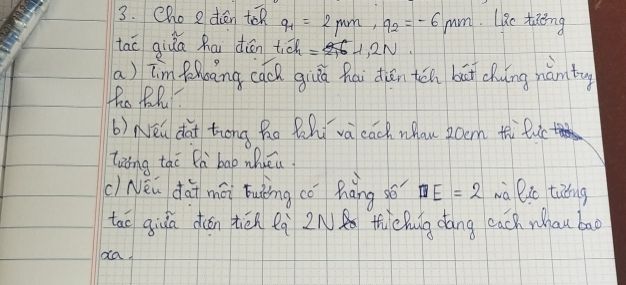 3. Cho 2 điện tích q1 = 2 μm, q2 = -6 μm. Lực tương
tác giữa hai điện tích = 1,2N.
a) Tìm khoảng cách giữa hai điện tích biết chúng nằm trong
ko khí.
b) Nếu đặt trong ko khí và cách nhau 20cm thì lực
tương tác là bao nhiêu.
c) Nếu đặt môi trường có hằng số E = 2 và lực tương
tác giữa điện tích là 2N thì chúng đang cách nhau bao
xa.